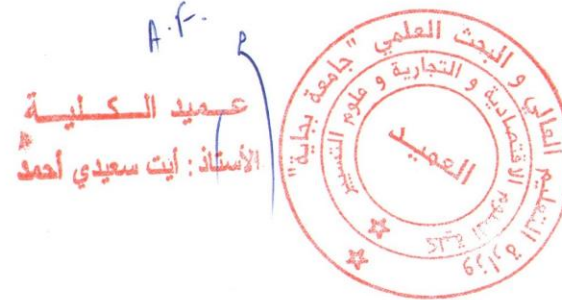 A.F.
عميد الكلية
الأستاذ : أيت سعيدي أحمد
وزارة التعليم العالي و البحث العلمي "جامعة بجاية"
كلية العلوم الاقتصادية و التجارية و علوم التسيير
العميد